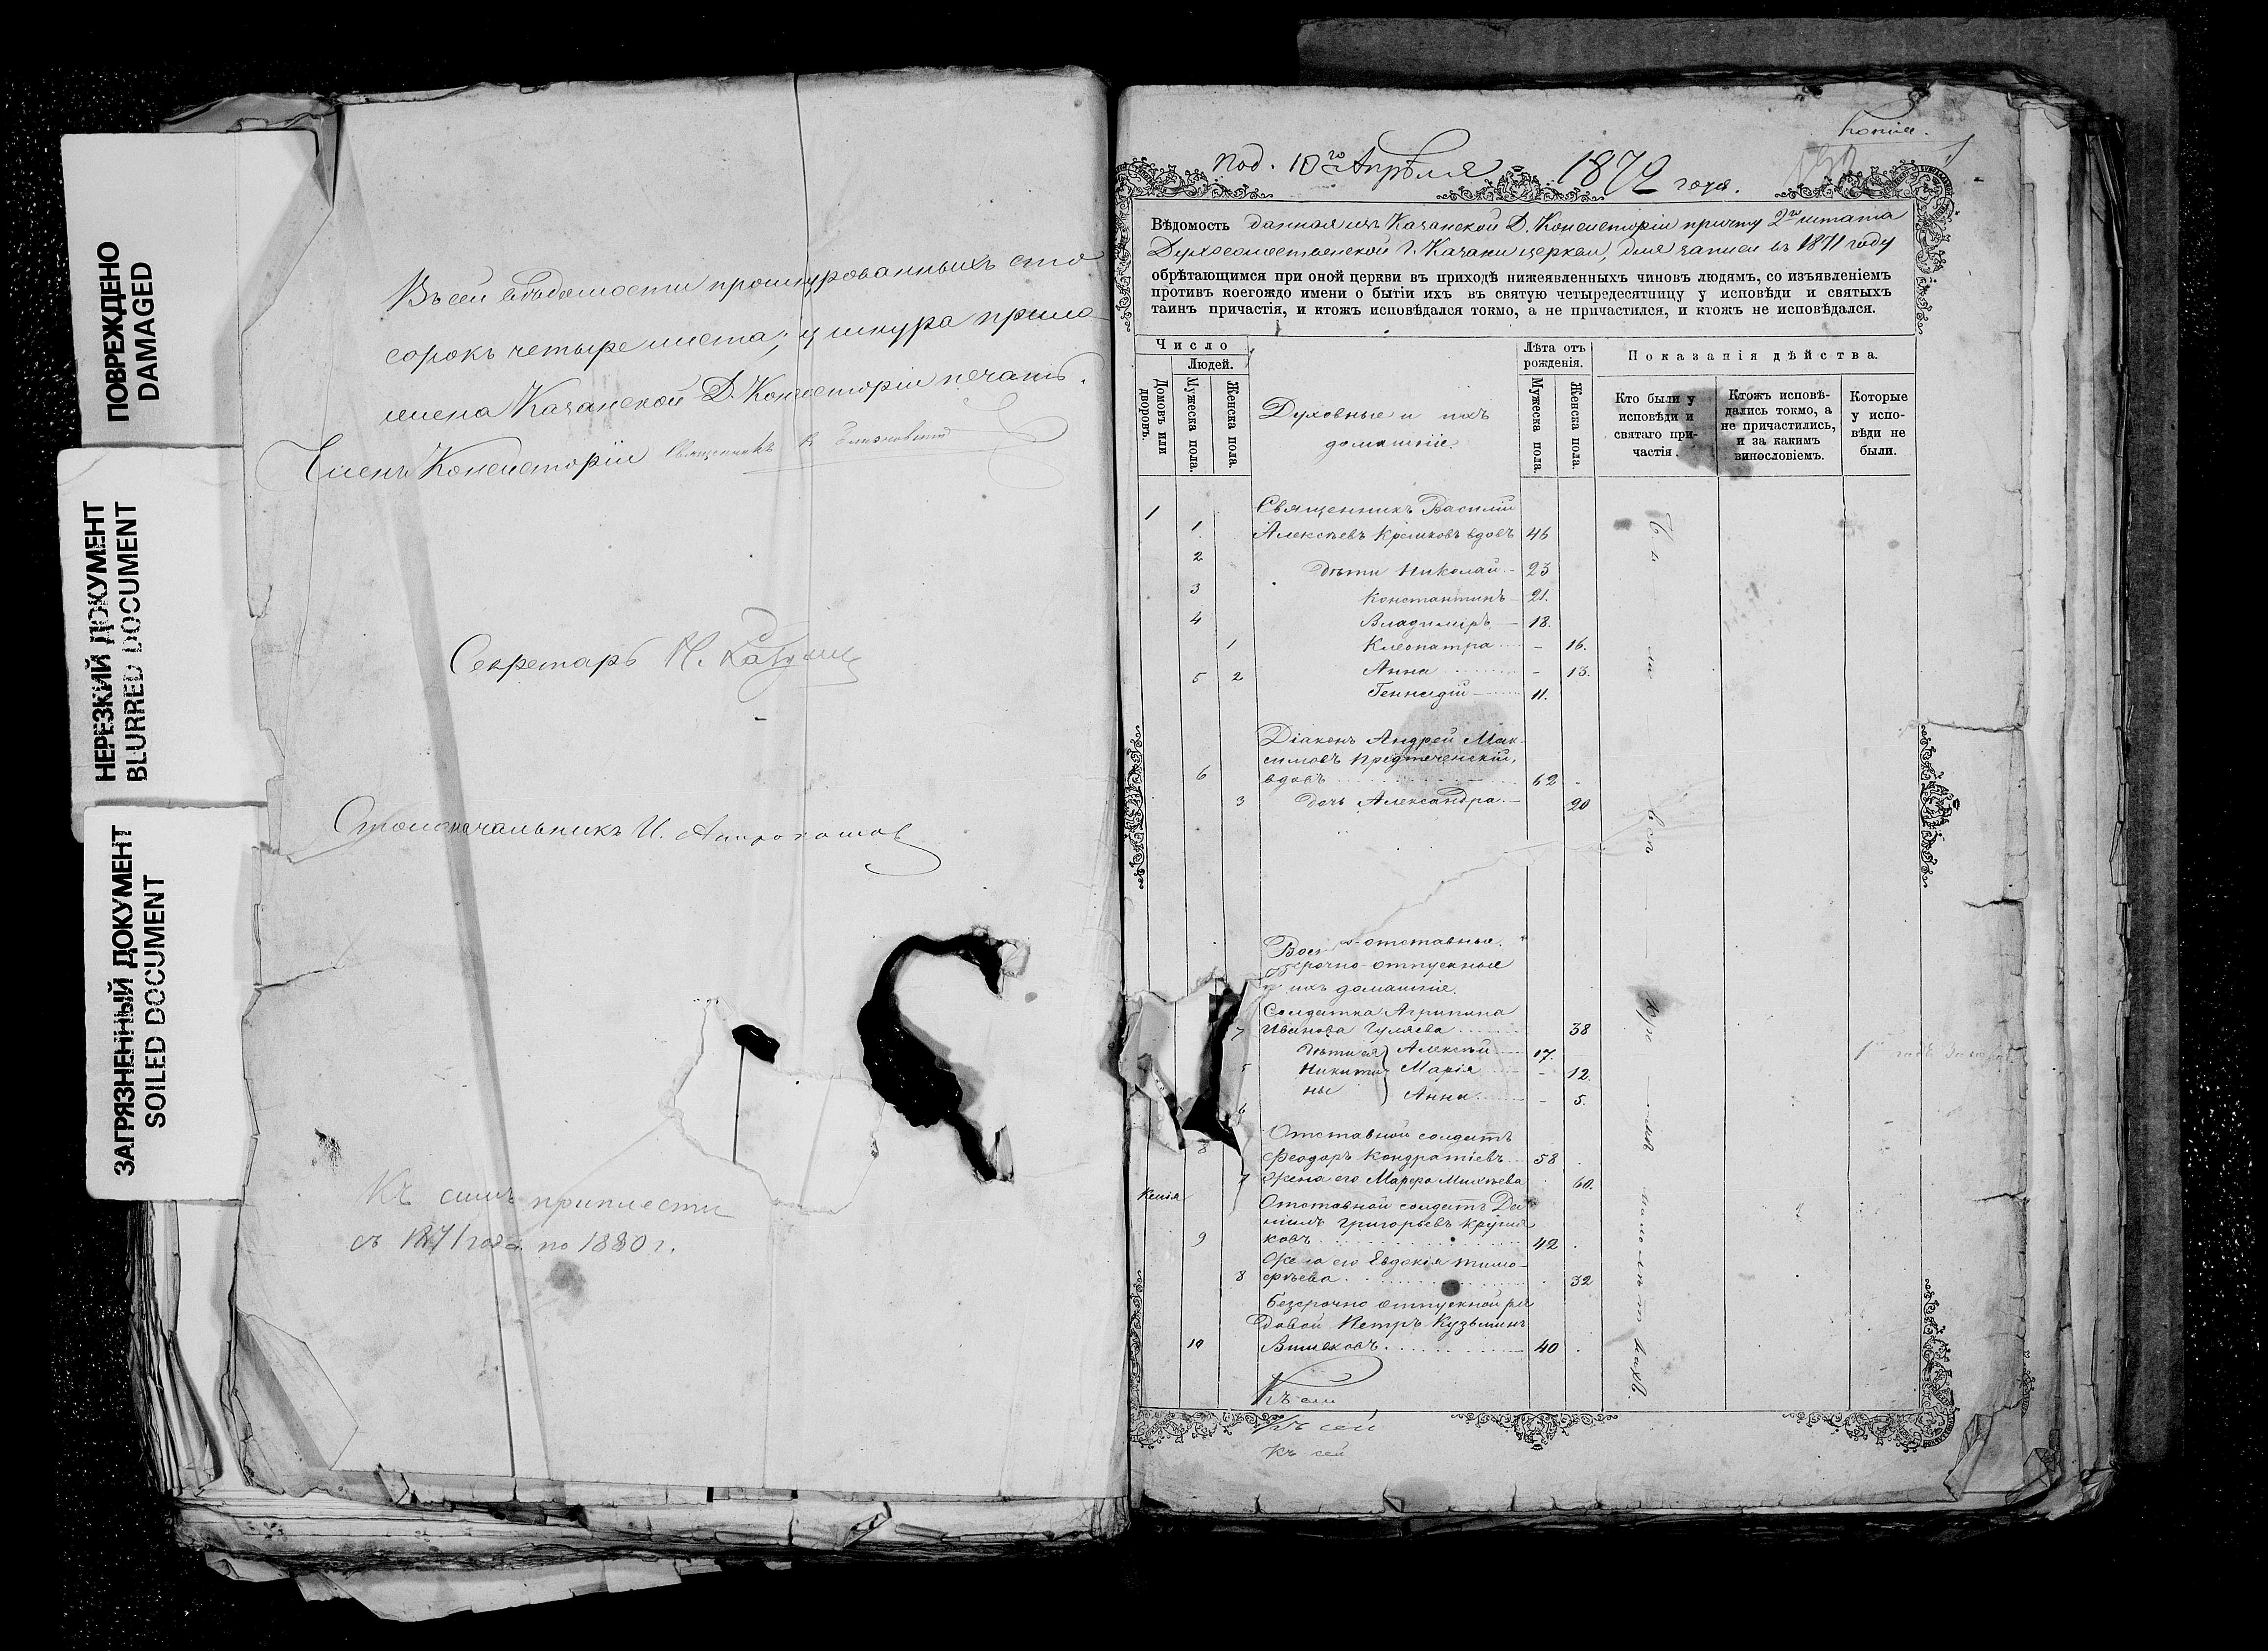 ПОВРЕЖДЕНО
DAMAGED
НЕРЕЗКИЙ ДОКУМЕНТ
BLURRED DOCUMENT
ЗАГРЯЗНЕННЫЙ ДОКУМЕНТ
SOILED DOCUMENT
Въ сей вѣдомости прошнурованныхъ сто
сорокъ четыре листа; у шнура прило-
жена Казанской Д. Консисторіи печать.
Членъ Консисторіи Священникъ В.
Секретарь Н.
Столоначальникъ И.
Къ симъ приплести
съ 1871 года по 1880 г.
Копія.
под. 10го Апрѣля 1872 года.
Вѣдомость данная изъ Казанской Д. Консисторіи причту 2го штата
Духосошественской г. Казани церкви, для записи въ 1871 году
обрѣтающимся при оной церкви въ приходѣ нижеявленныхъ чиновъ людямъ, со изъявленіемъ
противъ коегождо имени о бытіи ихъ въ святую четыредесятницу у исповѣди и святыхъ
таинъ причастія, и ктожъ исповѣдался токмо, а не причастился, и ктожъ не исповѣдался.
Число
Людей.
Домовъ или дворовъ.
Мужеска пола.
Женска пола.
Духовные и ихъ
домашніе.
Лѣта отъ
рожденія.
Мужеска пола.
Женска пола.
Показанія дѣйства.
Кто были у
исповѣди и
святаго при-
частія.
Ктожъ исповѣ-
дались токмо, а
не причастились,
и за какимъ
винословіемъ.
Которые
у испо-
вѣди не
были.
1 Священникъ Василій
1. Алексѣевъ вдовъ 46
2 Дѣти Николай 23
3 Константинъ 21.
4 Владиміръ 18.
1 Клеопатра - 16.
5 2 Анна - 13.
Геннадій 11.
Діаконъ Андрей Мак-
симовъ Предтеченскій,
6 вдовъ 62 -
3 Дочь Александра 20
отставные,
срочно-отпускные
и ихъ домашніе.
Солдатка Агрипина
Иванова Гуляева 38
Дѣти ея Алексѣй 17.
5 Никити- Марія - 12.
6 ны Анна - 5.
Отставной солдатъ
8 Феодоръ Кондратіевъ 58
7 Жена его Марфа Михѣева 60.
Келія Отставной солдатъ Да-
ніилъ Григорьевъ
9 ковъ 42
Жена его Евдокія Тимо-
8 фѣева 32
Безсрочно отпускной ря-
довой Петръ Кузьминъ
10 40
Къ сей
Къ сей
Къ сей